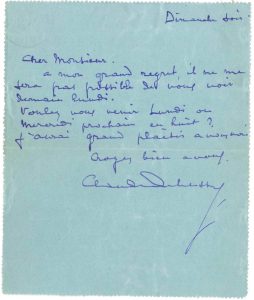 Dimanche soir
Cher Monsieur.
a mon grand regret, il ne me
sera pas possible de vous voir
demain lundi.
Voulez vous venir Lundi ou
Mercredi prochain en huit ?
J'aurai grand plaisir a vous voir
Croyez bien a vous.
Claude Debussy